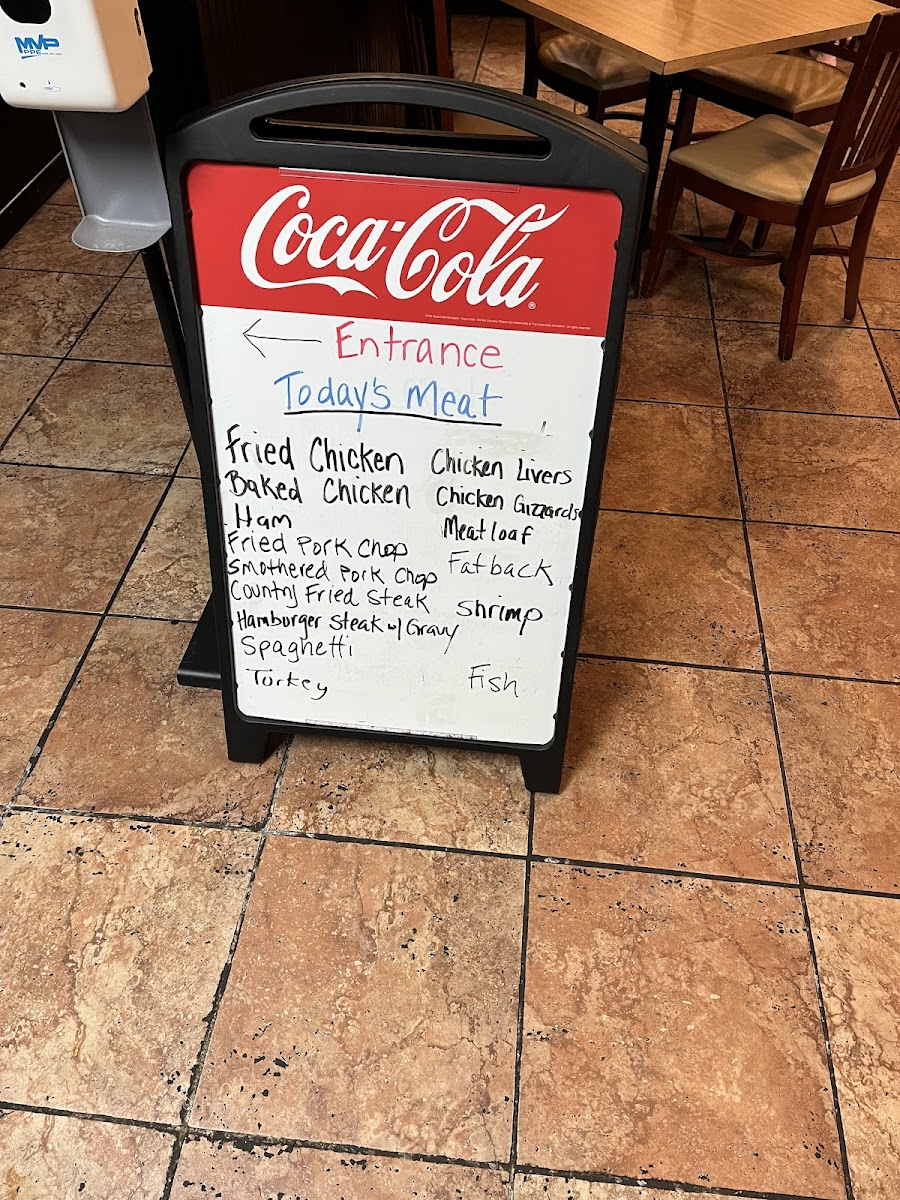 MVP
PPE
Coca-Cola
Entrance
Today's Meat
Fried Chicken
Baked Chicken
Ham
Fried Pork Chop
Smothered Pork Chop
Country Fried Steak
Hamburger Steak w/ Gravy
Spaghetti
Turkey
Chicken Livers
Chicken Gizzards
Meatloaf
Fatback
Shrimp
Fish